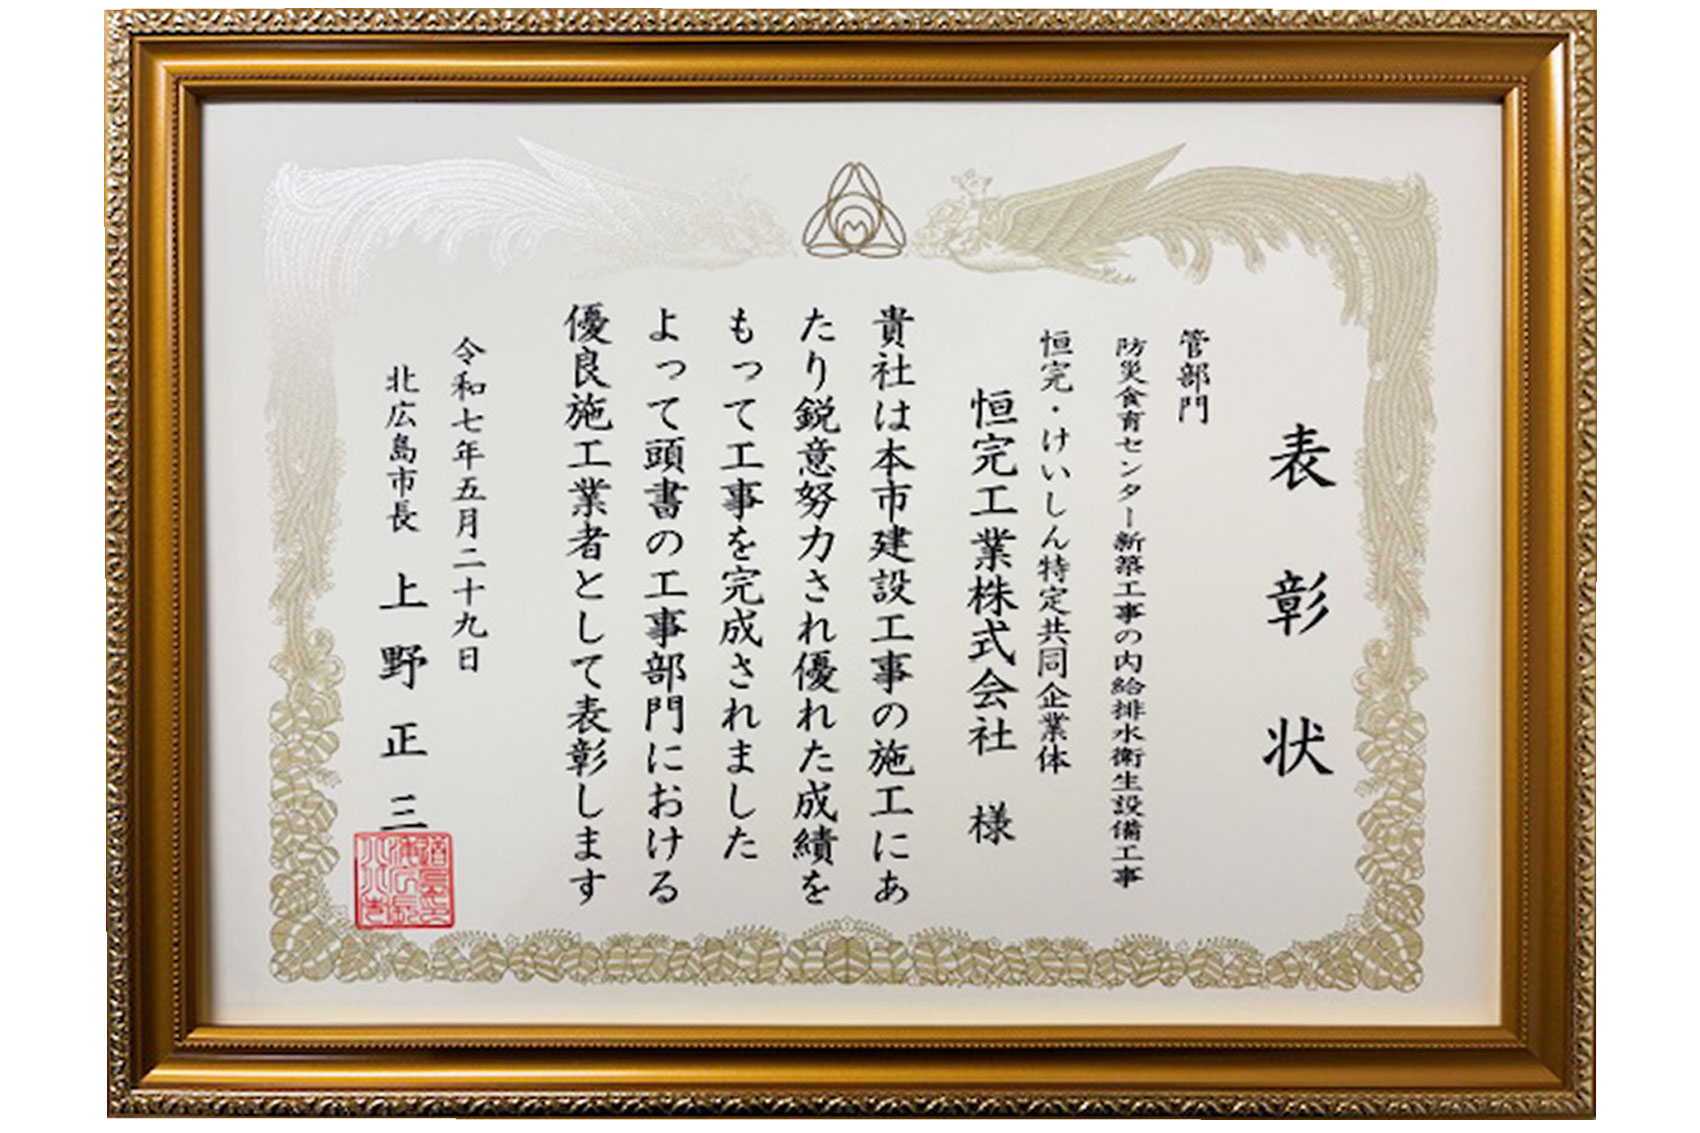 表彰状
管部門
防災食育センター新築工事の内給排水衛生設備工事
恒完・けいしん特定共同企業体
恒完工業株式会社 様
貴社は本市建設工事の施工にあ
たり鋭意努力され優れた成績を
もって工事を完成されました
よって頭書の工事部門における
優良施工業者として表彰します
令和七年五月二十九日
北広島市長 上野正三